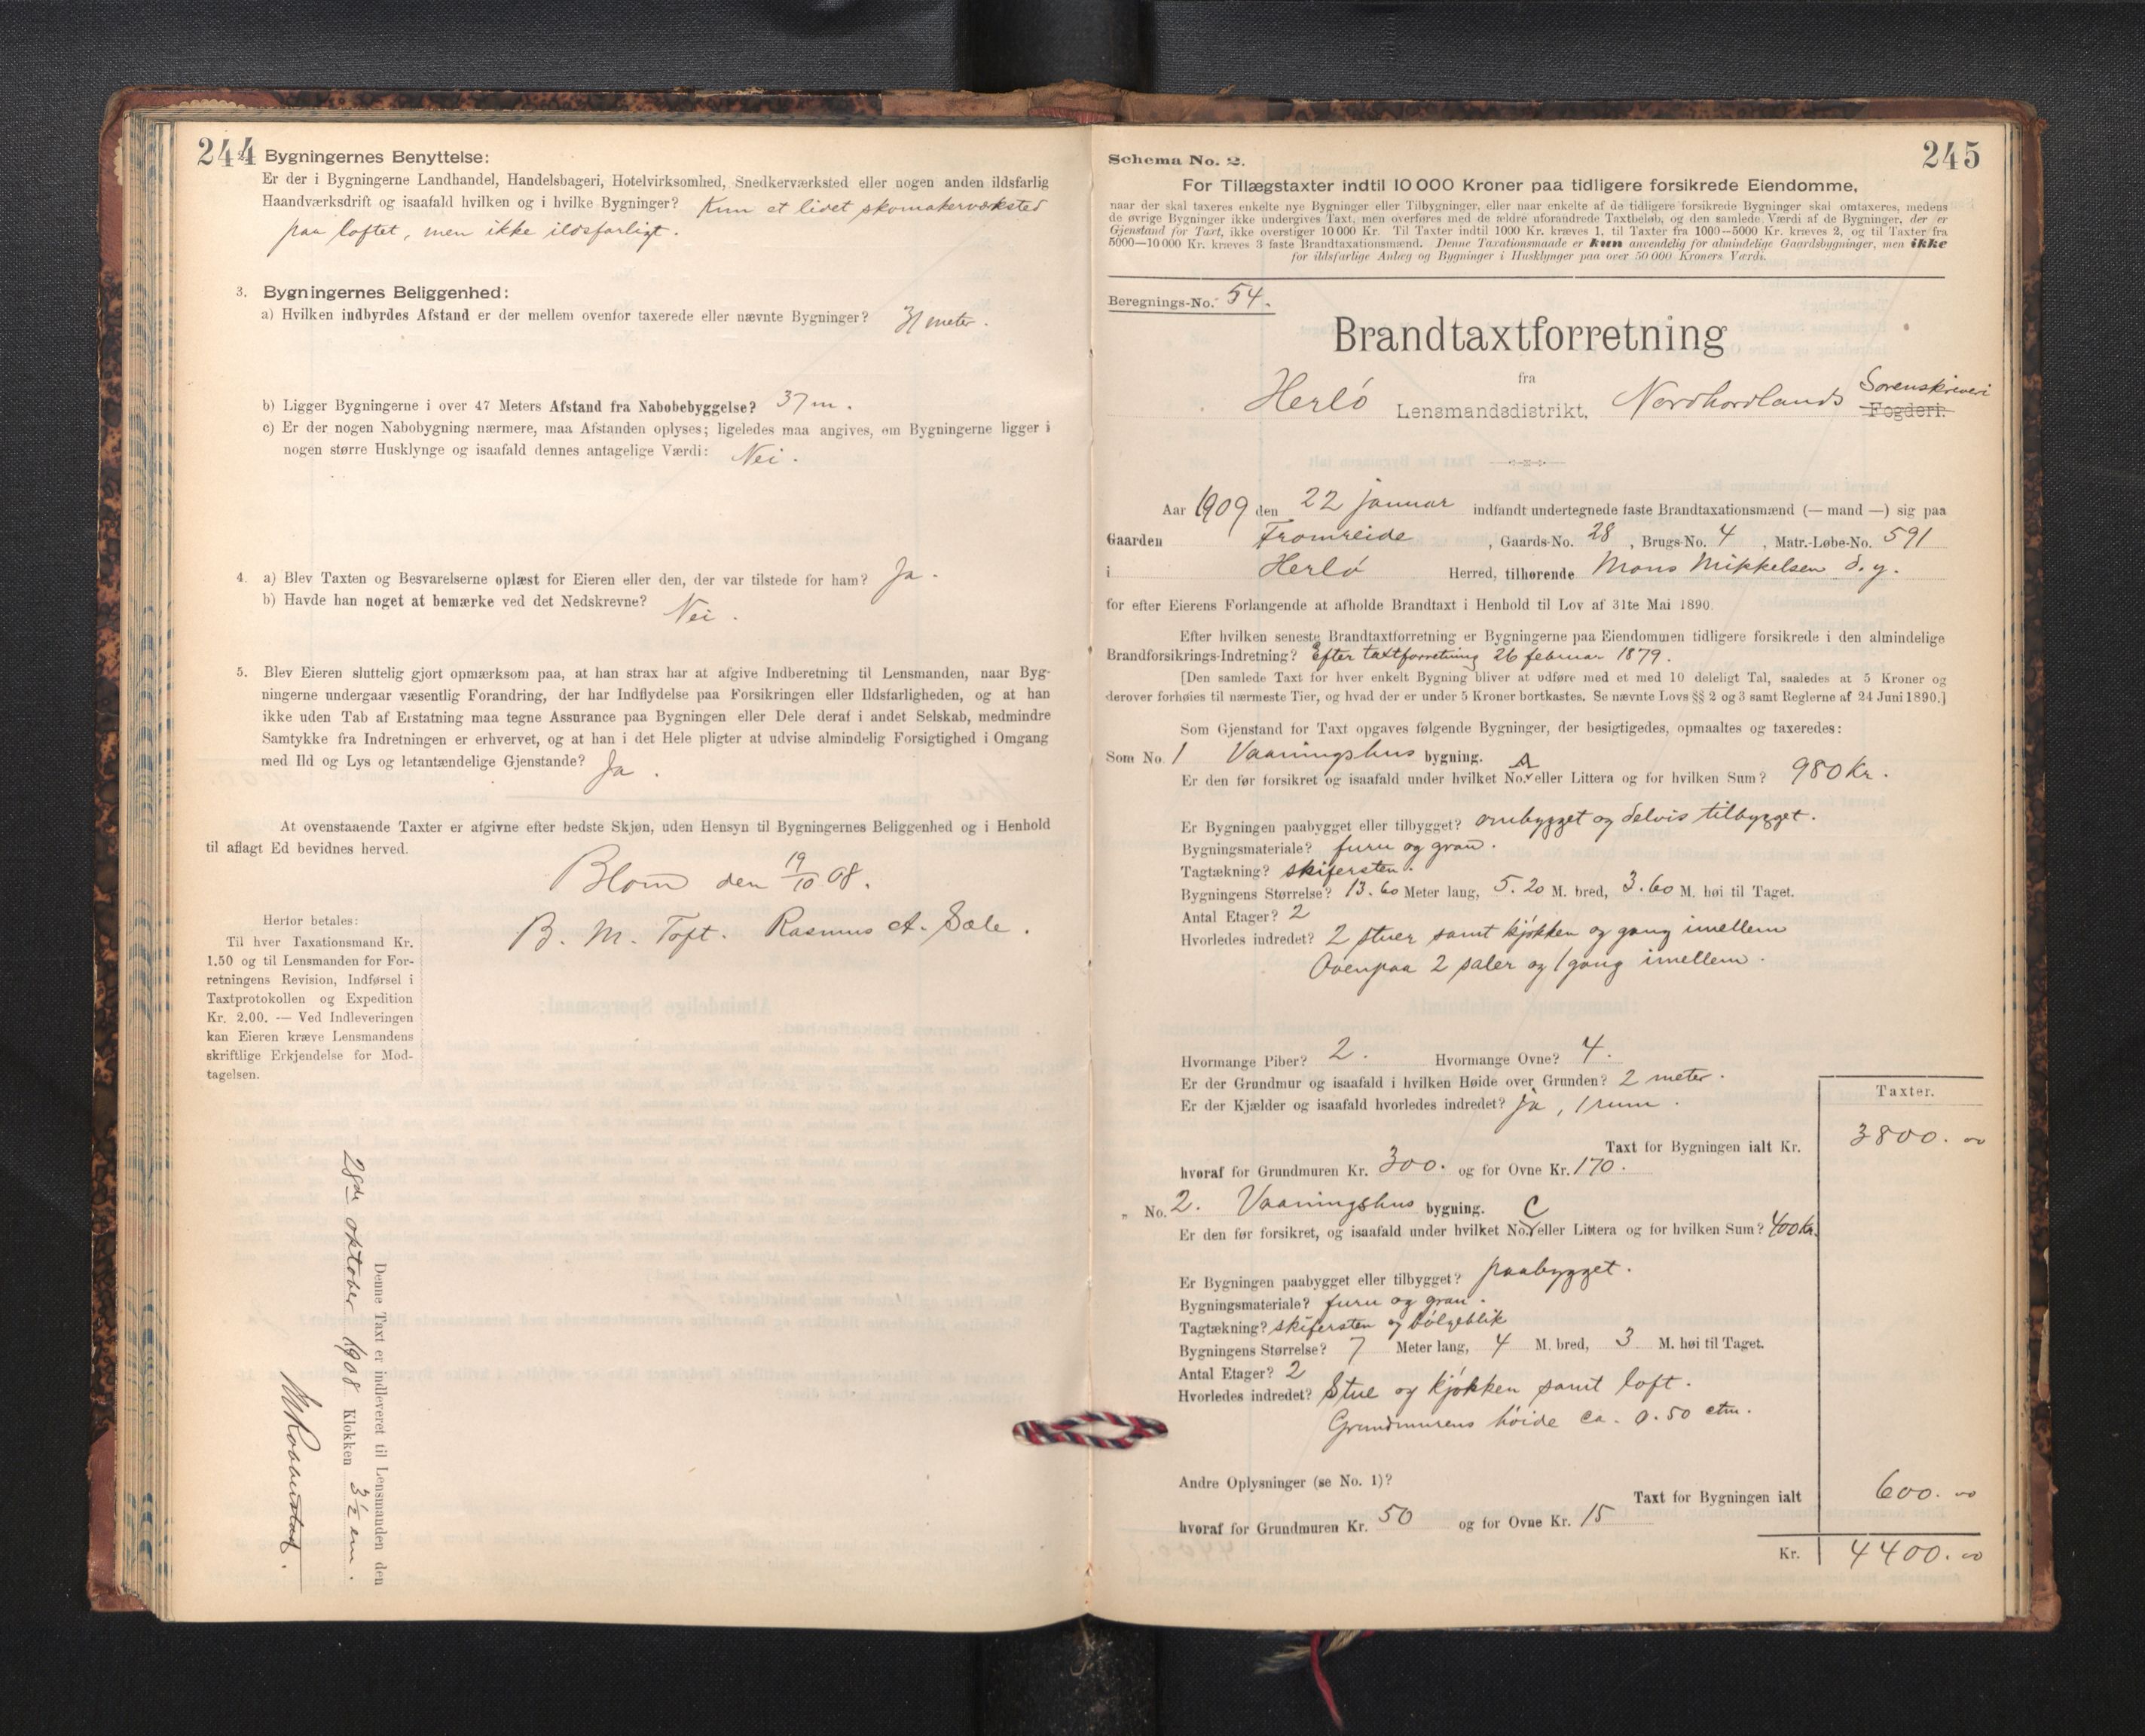 244
2. Bygningernes Benyttelse:
Er der i Bygningerne Landhandel, Handelsbageri, Hotelvirksomhed, Snedkerværksted eller nogen anden ildsfarlig
Haandværksdrift og isaafald hvilken og i hvilke Bygninger? Kun et lidet skomakerværksted
paa loftet, men ikke ildsfarligt.
3. Bygningernes Beliggenhed:
a) Hvilken indbyrdes Afstand er der mellem ovenfor taxerede eller nævnte Bygninger? 31 meter.
b) Ligger Bygningerne i over 47 Meters Afstand fra Nabobebyggelse? 37 m.
c) Er der nogen Nabobygning nærmere, maa Afstanden oplyses; ligeledes maa angives, om Bygningerne ligger i
nogen større Husklynge og isaafald dennes antagelige Værdi: Nei.
4. a) Blev Taxten og Besvarelserne oplæst for Eieren eller den, der var tilstede for ham? Ja.
b) Havde han noget at bemærke ved det Nedskrevne? Nei.
5. Blev Eieren sluttelig gjort opmærksom paa, at han strax har at afgive Indberetning til Lensmanden, naar Byg-
ningerne undergaar væsentlig Forandring, der har Indflydelse paa Forsikringen eller Ildsfarligheden, og at han
ikke uden Tab af Erstatning maa tegne Assurance paa Bygningen eller Dele deraf i andet Selskab, medmindre
Samtykke fra Indretningen er erhvervet, og at han i det Hele pligter at udvise almindelig Forsigtighed i Omgang
med Ild og Lys og letantændelige Gjenstande? Ja.
At ovenstaaende Taxter er afgivne efter bedste Skjøn, uden Hensyn til Bygningernes Beliggenhed og i Henhold
til aflagt Ed bevidnes herved.
Blom den 19/10 08.
B. M. Toft. Rasmus A. Sæle.
Herfor betales:
Til hver Taxationsmand Kr.
1.50 og til Lensmanden for For-
retningens Revision, Indførsel i
Taxtprotokollen og Expedition
Kr. 2.00. — Ved Indleveringen
kan Eieren kræve Lensmandens
skriftlige Erkjendelse for Mod-
tagelsen.
Denne Taxt er indleveret til Lensmanden den
28de oktober 1908 Klokken 3½ em.
245
Schema No. 2.
For Tillægstaxter indtil 10 000 Kroner paa tidligere forsikrede Eiendomme,
naar der skal taxeres enkelte nye Bygninger eller Tilbygninger, eller naar enkelte af de tidligere forsikrede Bygninger skal omtaxeres, medens
de øvrige Bygninger ikke undergives Taxt, men overføres med de ældre uforandrede Taxtbeløb, og den samlede Værdi af de Bygninger, der er
Gjenstand for Taxt, ikke overstiger 10 000 Kr. Til Taxter indtil 1000 Kr. kræves 1, til Taxter fra 1000—5000 Kr. kræves 2, og til Taxter fra
5000—10 000 Kr. kræves 3 faste Brandtaxationsmænd. Denne Taxationsmaade er kun anvendelig for almindelige Gaardsbygninger, men ikke
for ildsfarlige Anlæg og Bygninger i Husklynger paa over 50 000 Kroners Værdi.
Beregnings-No. 54.
Brandtaxtforretning
fra
Herlø Lensmandsdistrikt, Nordhordlands Sorenskriveri Fogderi.
Aar 1909 den 22 januar indfandt undertegnede faste Brandtaxationsmænd (— mand —) sig paa
Gaarden Fromreide, Gaards-No. 28, Brugs-No. 4, Matr.-Løbe-No. 591
i Herlø Herred, tilhørende Mons Mikkelsen d. y.
for efter Eierens Forlangende at afholde Brandtaxt i Henhold til Lov af 31te Mai 1890.
Efter hvilken seneste Brandtaxtforretning er Bygningerne paa Eiendommen tidligere forsikrede i den almindelige
Brandforsikrings-Indretning? Efter taxtforretning 26 februar 1879.
[Den samlede Taxt for hver enkelt Bygning bliver at udføre med et med 10 deleligt Tal, saaledes at 5 Kroner og
derover forhøies til nærmeste Tier, og hvad der er under 5 Kroner bortkastes. Se nævnte Lovs §§ 2 og 3 samt Reglerne af 24 Juni 1890.]
Som Gjenstand for Taxt opgaves følgende Bygninger, der besigtigedes, opmaaltes og taxeredes:
Som No. 1 Vaaningshus bygning.
Er den før forsikret og isaafald under hvilket No. A eller Littera og for hvilken Sum? 980 Kr.
Er Bygningen paabygget eller tilbygget? ombygget og delvis tilbygget.
Bygningsmateriale? furu og gran.
Tagtækning? skifersten.
Bygningens Størrelse? 13.60 Meter lang, 5.20 M. bred, 3.60 M. høi til Taget.
Antal Etager? 2
Hvorledes indredet? 2 stuer samt kjøkken og gang imellem
Ovenpaa 2 saler og 1 gang imellem.
Hvormange Piber? 2. Hvormange Ovne? 4.
Er der Grundmur og isaafald i hvilken Høide over Grunden? 2 meter.
Er der Kjælder og isaafald hvorledes indredet? Ja, 1 rum.
Taxter.
Taxt for Bygningen ialt Kr. 3800.00
hvoraf for Grundmuren Kr. 300. og for Ovne Kr. 170.
„ No. 2. Vaaningshus bygning.
Er den før forsikret, og isaafald under hvilket No. C eller Littera og for hvilken Sum? 400 Kr.
Er Bygningen paabygget eller tilbygget? paabygget.
Bygningsmateriale? furu og gran.
Tagtækning? skifersten og bølgeblik
Bygningens Størrelse? 7 Meter lang, 4 M. bred, 3 M. høi til Taget.
Antal Etager? 2
Hvorledes indredet? Stue og kjøkken samt loft.
Grundmurens høide ca. 0.50 ctm.
Andre Oplysninger (se No. 1)?
Taxt for Bygningen ialt 600.00
hvoraf for Grundmuren Kr. 50 og for Ovne Kr. 15
Kr. 4400.00